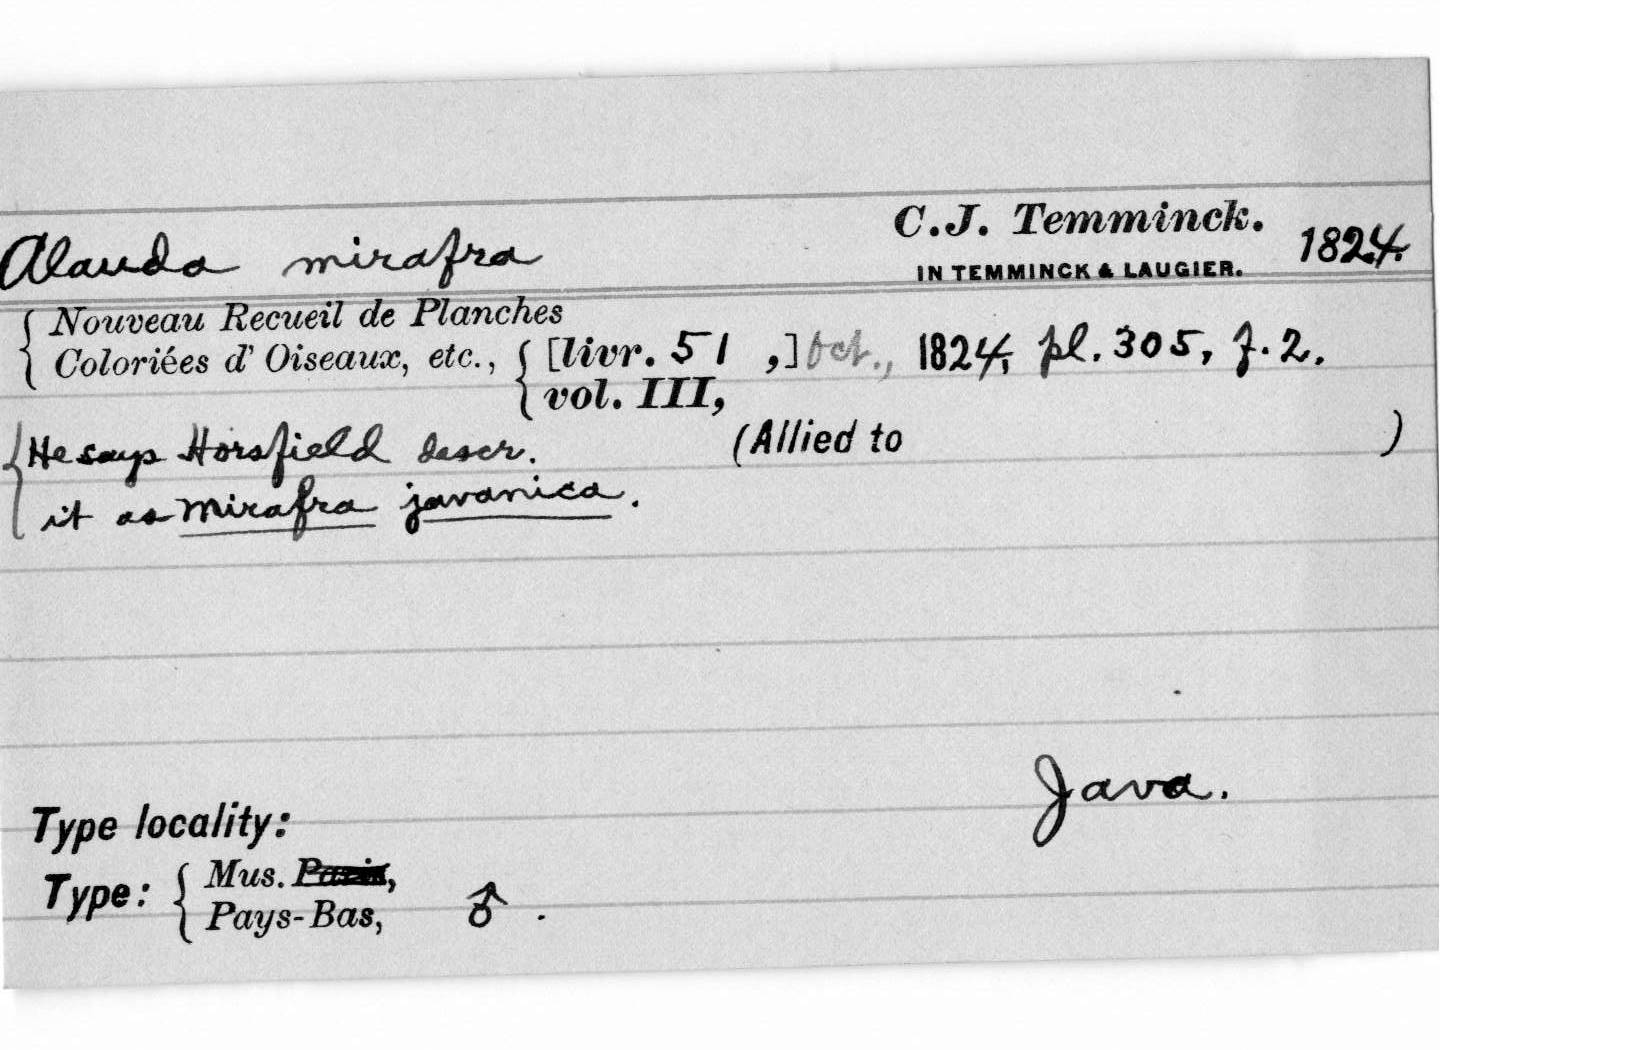 C.J. Temminck.
Alauda mirafra 1824.
IN TEMMINCK & LAUGIER.
Nouveau Recueil de Planches
Coloriées d' Oiseaux, etc., [livr. 51 ,] Oct., 1824, pl. 305, f. 2.
vol. III,
He says Horsfield descr. (Allied to )
it as Mirafra javanica.
Java.
Type locality:
Mus. Paris,
Type:
Pays-Bas, ♂ .